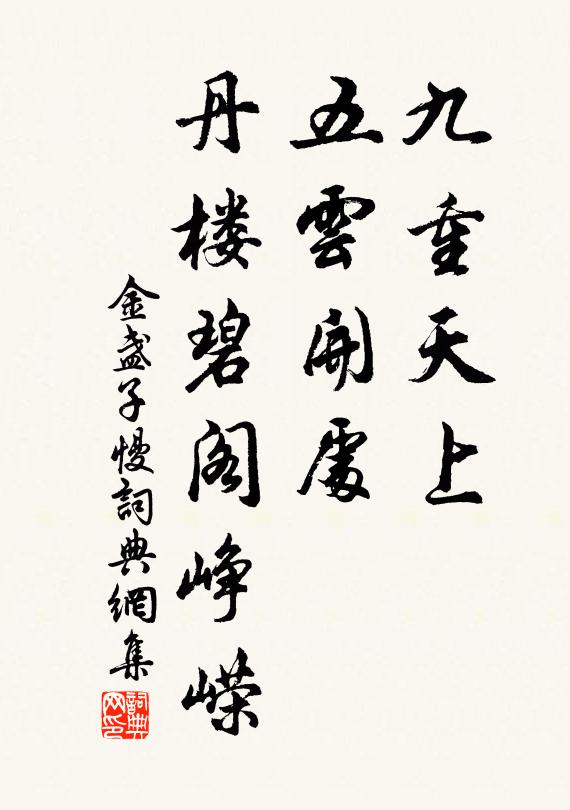 九重天上
五雲開處
丹楼碧阁峥嵘
金盏子慢詞典網集
詞典网印